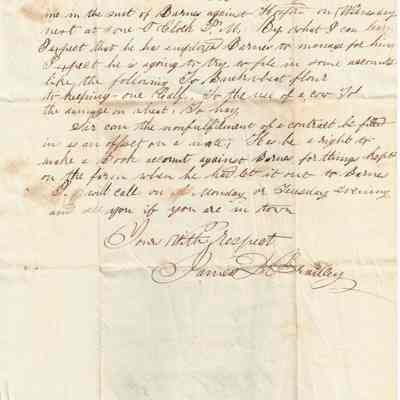 me in the suit of Barnes against on Wednesday
next at one O Clock P. M. By what I can
I expect that he has employed Barnes to manage for him
I expect he is agoing to try to file in some accounts
like the following To Buckwheat flour
to keeping one Calf. To the use of a cow
the damage on wheat. To hay
Sir can the nonfulfillment of a contract be filed
in as an offset on a note; Has he a right to
make a Book account against Barnes for things kept
on the farm when he had let it out to Barnes
I will call on Monday or Tuesday Evening
and see you if you are in town
Yours With Respect
James Bradley